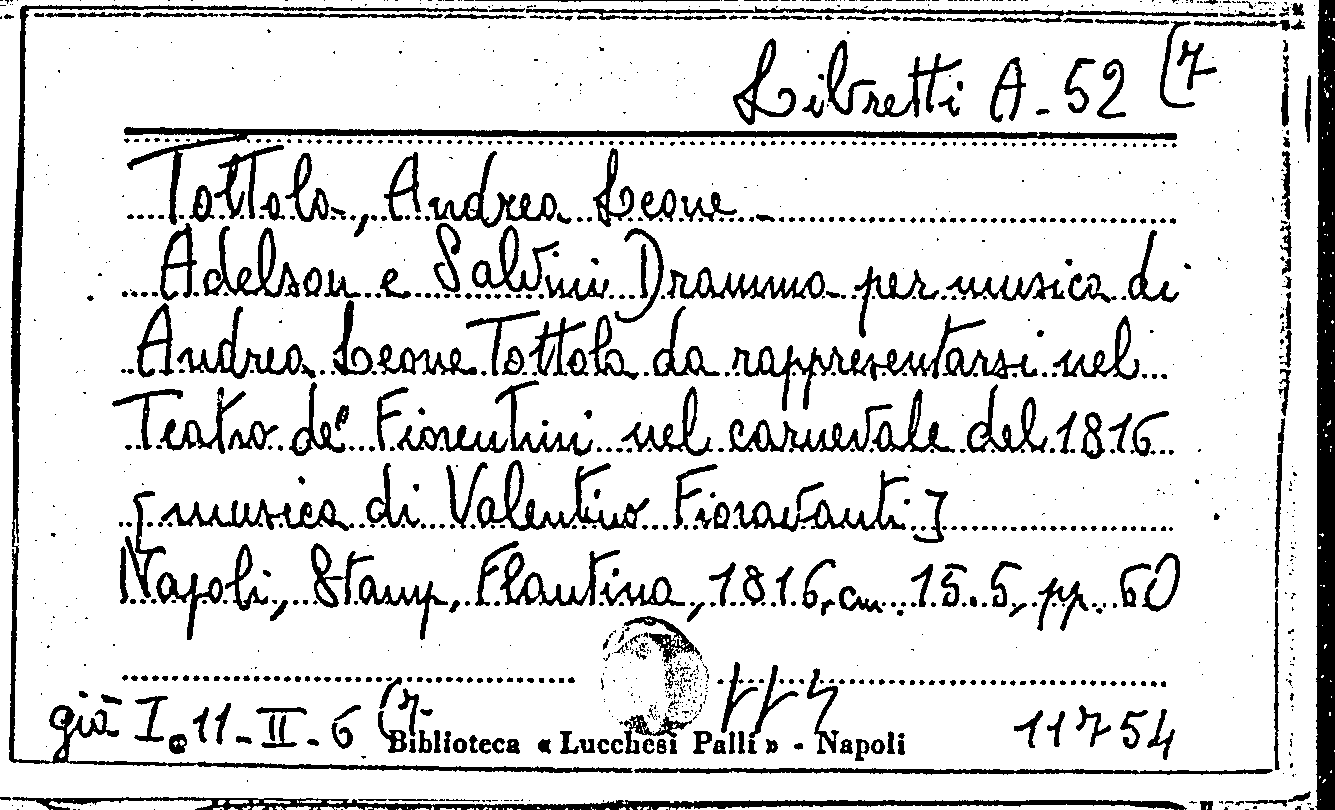 Libretti A-52 (7
Tottola, Andrea Leone
Adelson e Salvini Dramma per musica di
Andrea Leone Tottola da rappresentarsi nel
Teatro de' Fiorentini nel carnevale del 1816
[musica di Valentino Fioravanti]
Napoli, Stamp. Flautina, 1816, cm. 15.5, pp. 60
già I. 11-II-6 (7
11754
Biblioteca « Lucchesi Palli » - Napoli